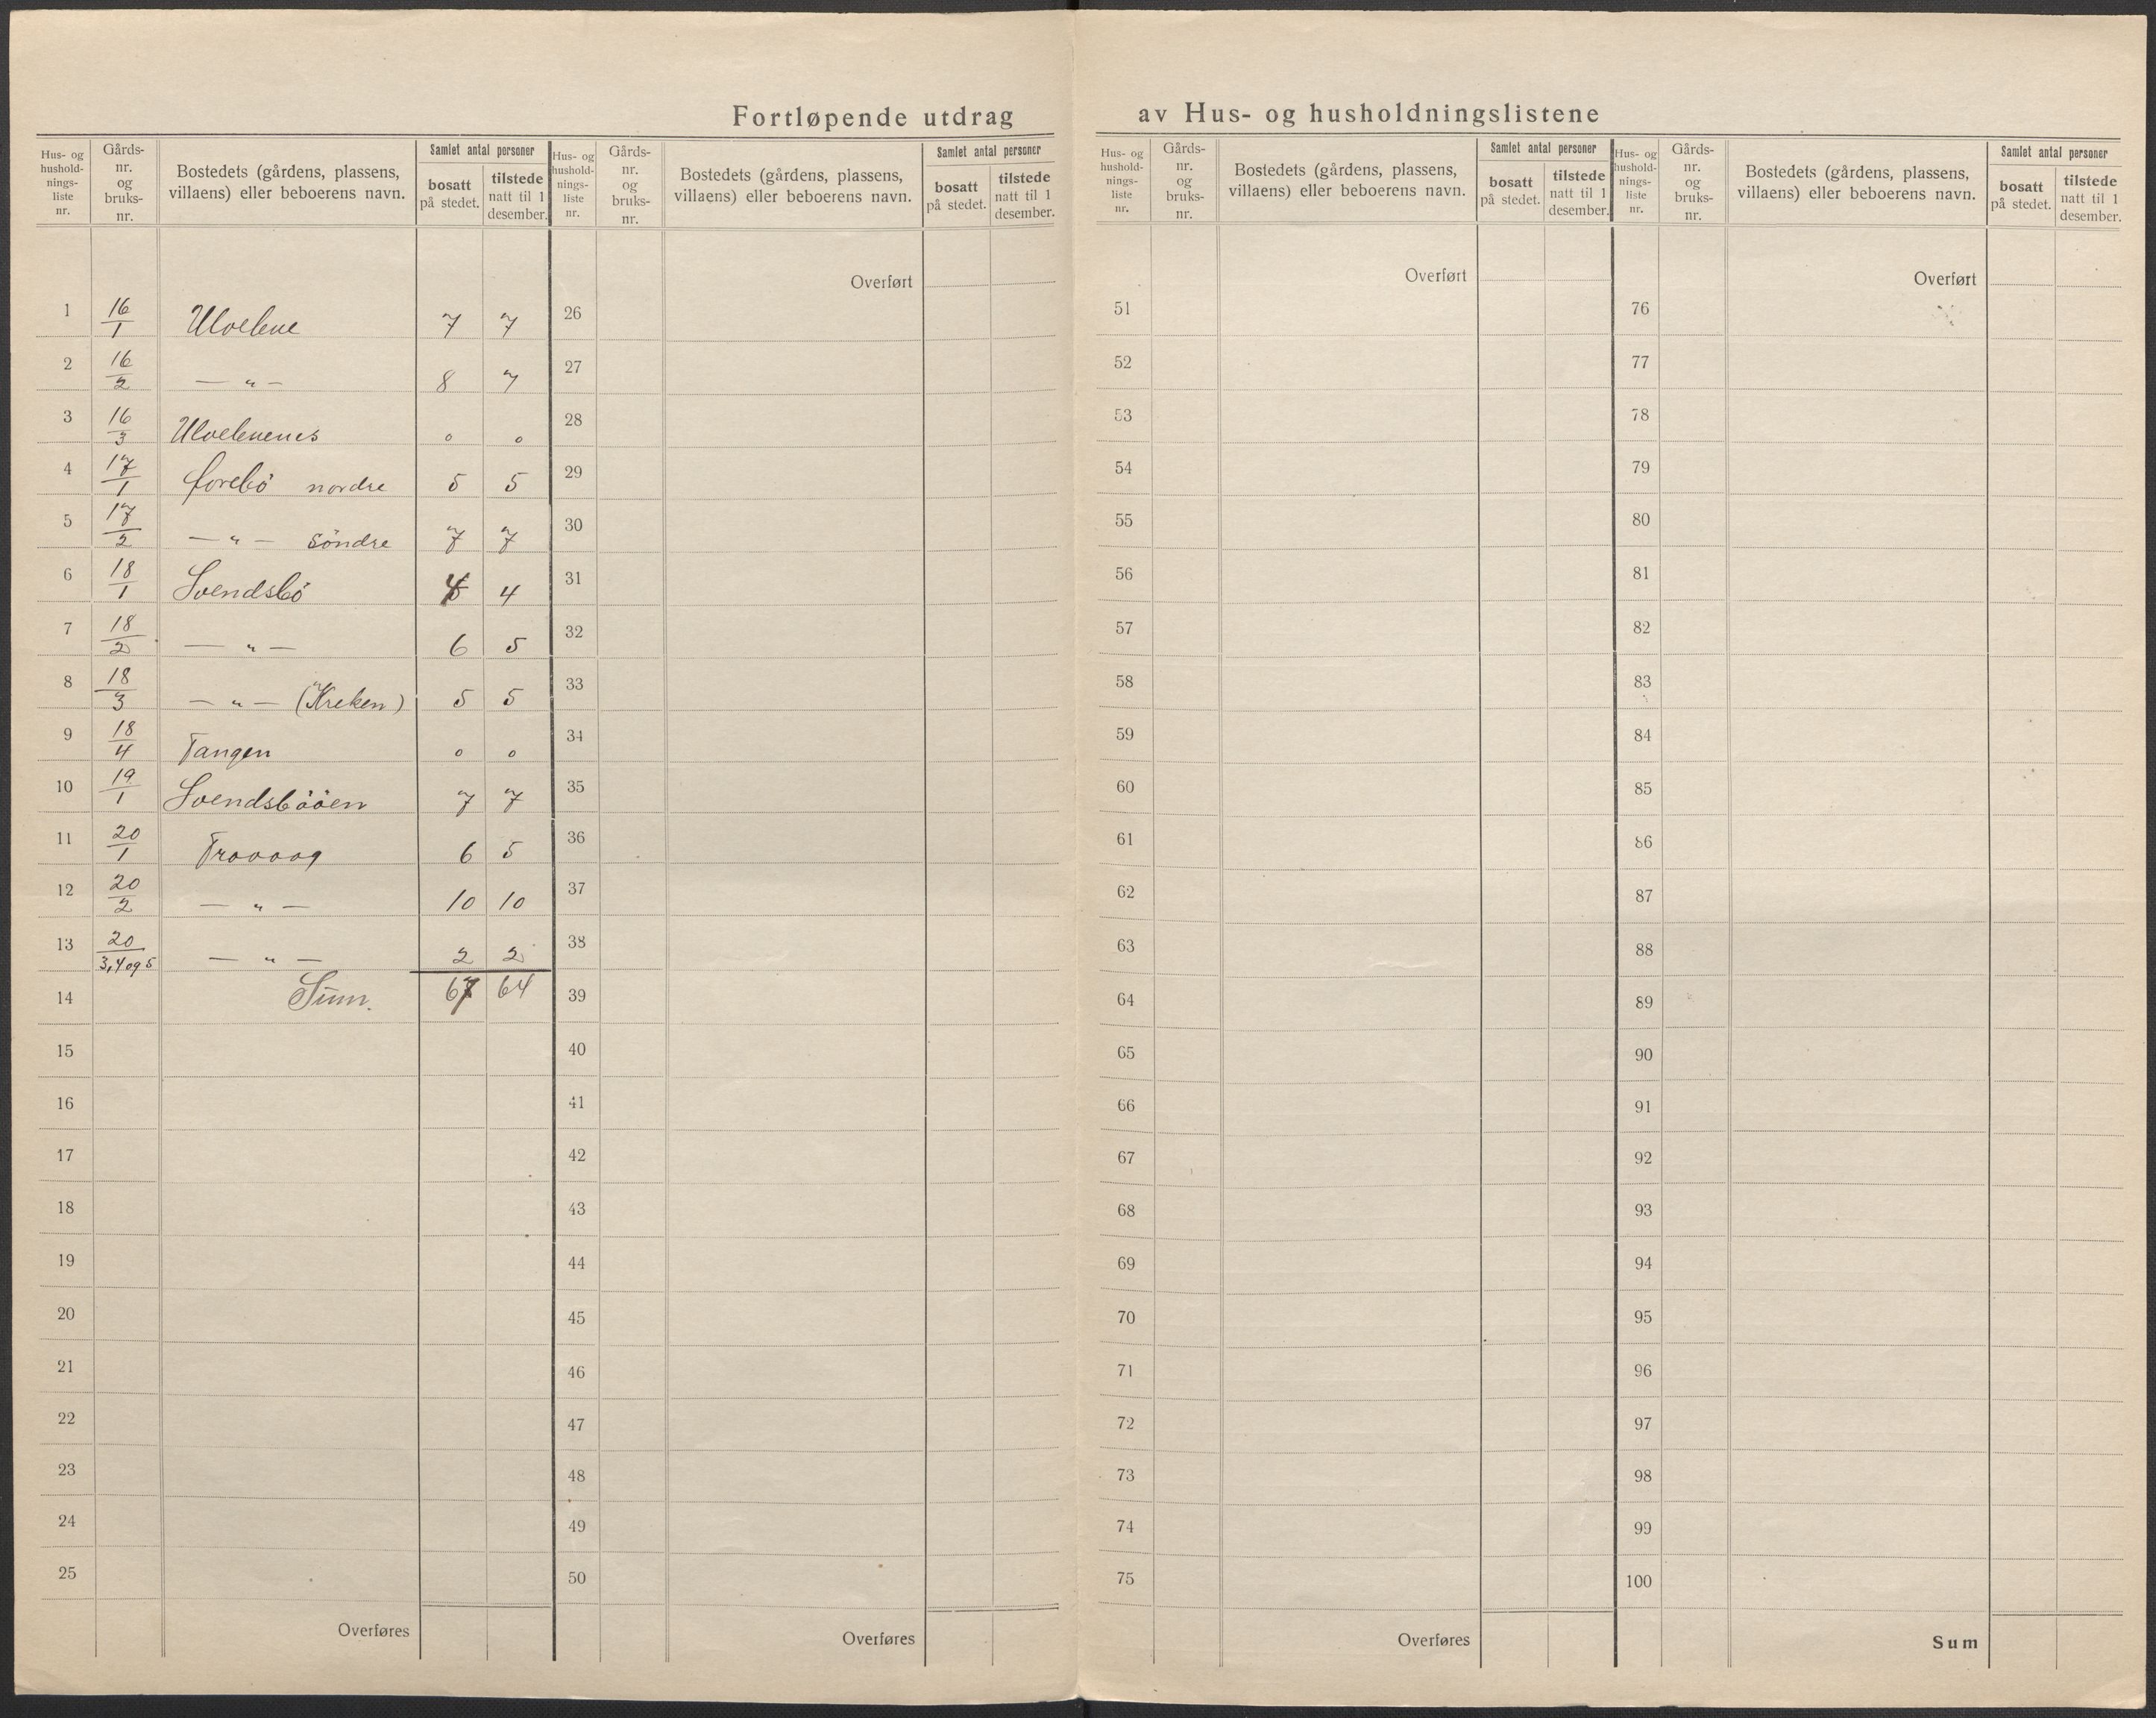 Fortløpende utdrag av Hus- og husholdningslistene
Hus- og hushold-nings-liste nr. | Gårds-nr. og bruks-nr. | Bostedets (gårdens, plassens, villaens) eller beboerens navn. | Samlet antal personer | bosatt på stedet. | tilstede natt til 1 desember.
Hus- og hushold-nings-liste nr. | Gårds-nr. og bruks-nr. | Bostedets (gårdens, plassens, villaens) eller beboerens navn. | Samlet antal personer | bosatt på stedet. | tilstede natt til 1 desember.
Hus- og hushold-nings-liste nr. | Gårds-nr. og bruks-nr. | Bostedets (gårdens, plassens, villaens) eller beboerens navn. | Samlet antal personer | bosatt på stedet. | tilstede natt til 1 desember.
Hus- og hushold-nings-liste nr. | Gårds-nr. og bruks-nr. | Bostedets (gårdens, plassens, villaens) eller beboerens navn. | Samlet antal personer | bosatt på stedet. | tilstede natt til 1 desember.
1 16/1 7 7
2 16/2 — " — 8 7
3 16/3 0 0
4 17/1 nordre 5 5
5 17/2 — " — söndre 7 7
6 18/1 Svendsbö 4 4
7 18/2 — " — 6 5
8 18/3 — " — (Kreken) 5 5
9 18/4 Tangen 0 0
10 19/1 Svendsbööen 7 7
11 20/1 6 5
12 20/2 — " — 10 10
13 20/3,4 og 5 — " — 2 2
14 Sum. 67 64
15
16
17
18
19
20
21
22
23
24
25
Overføres
Overført
26
27
28
29
30
31
32
33
34
35
36
37
38
39
40
41
42
43
44
45
46
47
48
49
50
Overføres
Overført
51
52
53
54
55
56
57
58
59
60
61
62
63
64
65
66
67
68
69
70
71
72
73
74
75
Overføres
Overført
76
77
78
79
80
81
82
83
84
85
86
87
88
89
90
91
92
93
94
95
96
97
98
99
100
Sum